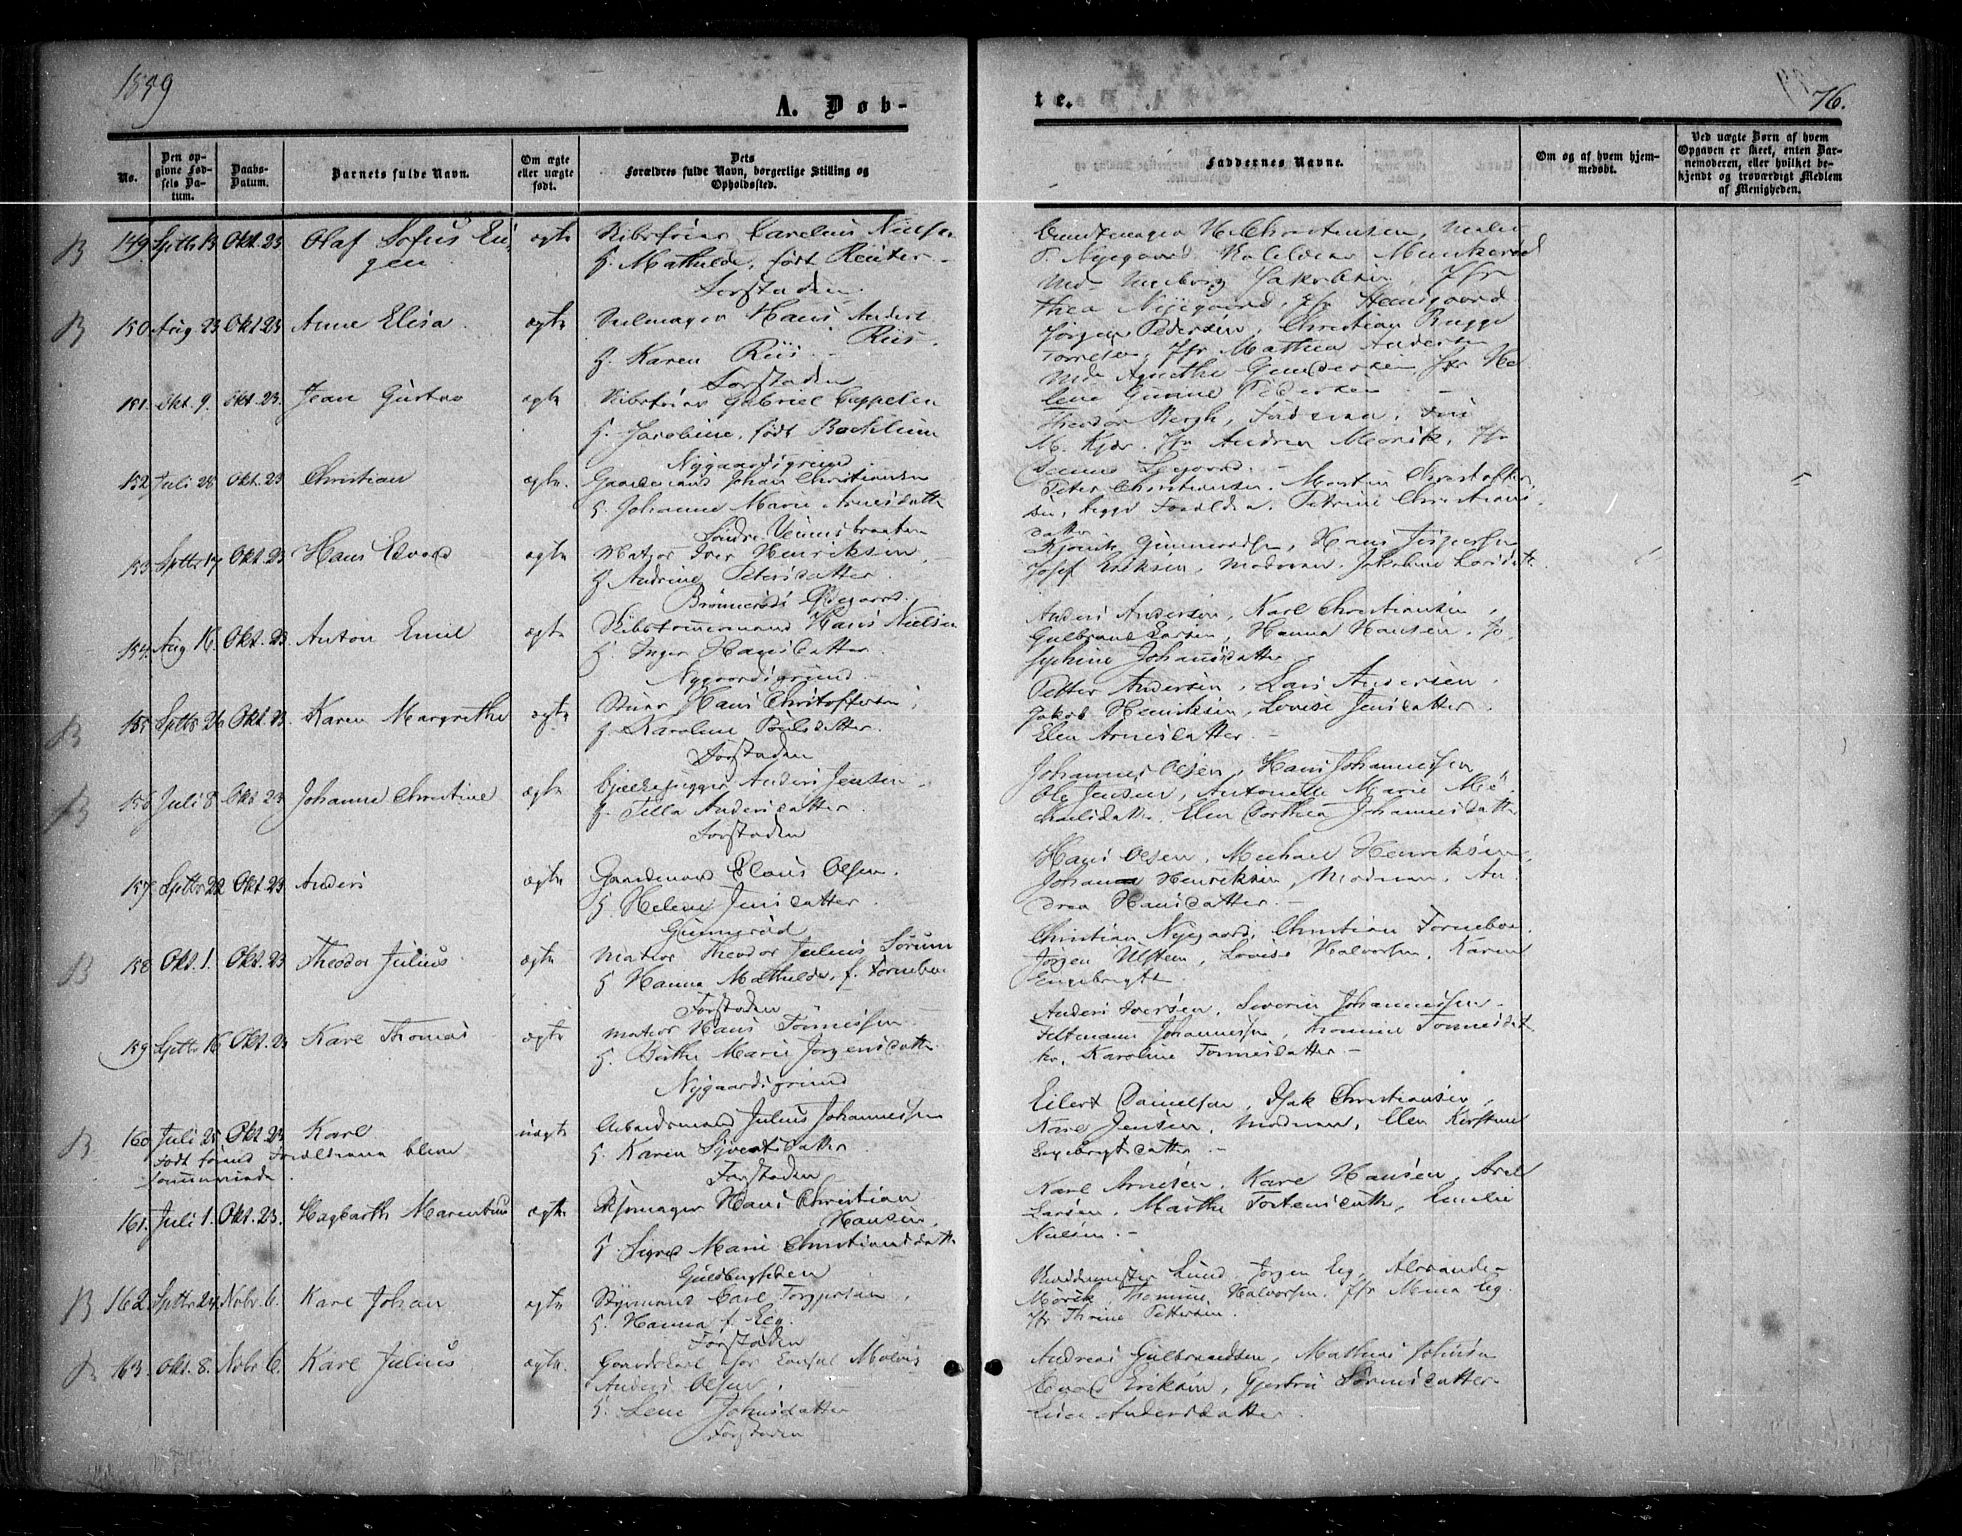 1859
A. Døb-
te.
76.
No.
Den op-
givne Fød-
sels Da-
tum.
Daabs-
Datum.
Barnets fulde Navn.
Om ægte
eller uægte
født.
Dets
Forældres fulde Navn, borgerlige Stilling og
Opholdssted.
Faddernes Navne.
Om og af hvem hjem-
medøbt.
Ved uægte Børn af hvem
Opgaven er skeet, enten Bar-
nemoderen, eller hvilket be-
kjendt og troværdigt Medlem
af Menigheden.
B
149. Septbr 13 Okt. 23 Olaf Sofus Eu-
gen
ægte
Carelius Nielsen
H. Mathilde, født Reuter
Forstaden
Christensen
T. Nyegaard
Jakobsen, Jfr
Thea Nyegaard, Jfr
B
150 Aug 23 Okt 23 Anne Elisa
ægte
Hans Anders
Riis.
H. Karen Riis
Forstaden
Jørgen Pedersen, Christian Bugge
Jfr Mathea Andersen
Agnethe Gundersen, Jfr He-
lene Gunine Pedersen
151. Okt. 9. Okt. 23. Jean Gustav
ægte
Gabriel Cappelen
H. Jacobine, født
Nygaardsgrund
Theodor Bergh, Faderen,
M. Kjær, Jfr Andrea Mørik, Jfr
152 Juli 28 Okt. 23 Christian
ægte.
Gaardmand Johan Christiansen
H. Johanne Marie Arnesdatter
Søndre
Peter Christiansen, Morten Christoffer-
sen, begge Forældre, Petrine Christians-
datter
153 Septbr 17 Okt 23 Hans Edvard
ægte
Matros Iver Henriksen
H Andrine Petersdatter
Brønnerøds Ødegaard
Gunnerødsen, Hans Jespersen
Josef Eriksen, Moderen, Jakobine Larsdatter
154. Aug 16. Okt. 23 Anton Emil
ægte
Skibstømmermand Hans Nielsen
H. Inger Hansdatter
Nygaardsgrund
Anders Andersen, Karl Christiansen,
Gulbrand Larsen, Hanna Hansen, Jo-
sephine Johansdatter
B
155 Septbr 26 Okt. 23 Karen Margrethe
ægte
Hans Christoffersen
H. Karoline Poulsdatter.
Forstaden
Petter Andersen, Lars Andersen
Jakob Henriksen, Lovise Jensdatter
Elen Arnesdatter.
B
156 Juli 8 Okt 23 Johanne Christine
ægte
Bjelkehugger Anders Jensen
H. Tilla Andersdatter
Forstaden
Johannes Olsen, Hans Johannessen
Ole Jensen, Antonette Marie Mi-
chelsdatter, Elen Dorthea Johannesdatter
157 Septbr 22 Okt. 23 Anders
ægte
Gaardmand Claus Olsen.
H. Helene Jensdatter.
Gunnerød
Hans Olsen, Michael Henriksen
Johan Henriksen, Moderen, An-
drea Hansdatter.
B
158 Okt. 1. Okt. 23 Theodor Julius
ægte
Matros Theodor Julius Sørum
H Hanna Mathilde, f. Tornebo
Forstaden
Christian Nyegaard, Christian Tornebo
Jørgen Ulstein, Lovise Halvorsen, Karen
Engebregts
159 Septbr 16 Okt. 23 Karl Thomas
ægte
Matros Hans Tønnessen
H. Birthe Marie Jørgensdatter
Nygaardsgrund
Anders Iversen, Severin Johannessen
Feltmann Johannessen, Tonnesdat-
ter, Karoline Tonnesdatter
B
160 Juli 25 Okt. 23 Karl
Født førend Forældrene bleve
uægte
Arbeidsmand Julius Johannessen
H. Karen Syvertsdatter
Forstaden
Eilert Danielsen, Isak Christiansen,
Karl Jensen, Moderen, Elen Kirstine
Engebregtsdatter
161. Juli 1. Okt. 23. Hagbarth Marentius
ægte
Skomager Hans Christian
Hansen,
H. Sigrid Marie Christiansdatter
Karl Arnesen, Karl Hansen, Axel
Larsen, Marthe Tostensdatter, Emilie
Nielsen
B
162 Septbr 24 Novbr. 6. Karl Johan
ægte
Styrmand Carl Torgersen
H. Hanna f. Eeg.
Forstaden
Lund Jørgen Eeg, Alexander
Mørik Thomine Halvorsen, Jfr Mina Eeg
Jfr Thrine Pettersen.
B
163. Okt. 8. Novbr 6. Karl Julius
ægte.
Gaardskarl hos Consul
Anders Olsen,
H. Lene Johnsdatter
Forstaden
Andreas Gulbrandsen, Mathias Johnsen
Eriksen, Gjertru Sørensdatter
Andersdatter.